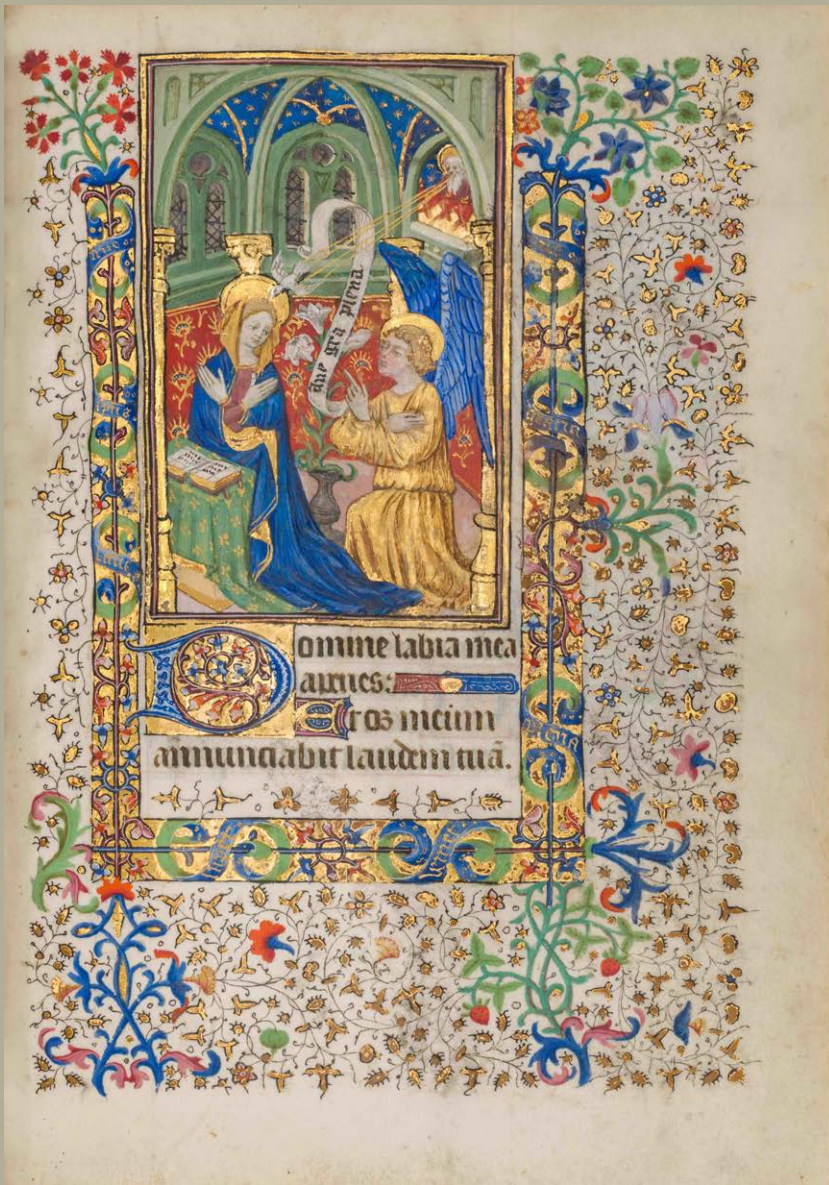 aue gra plena
Domine labia mea
apries:
Et os meum
annunciabit laudem tuā.